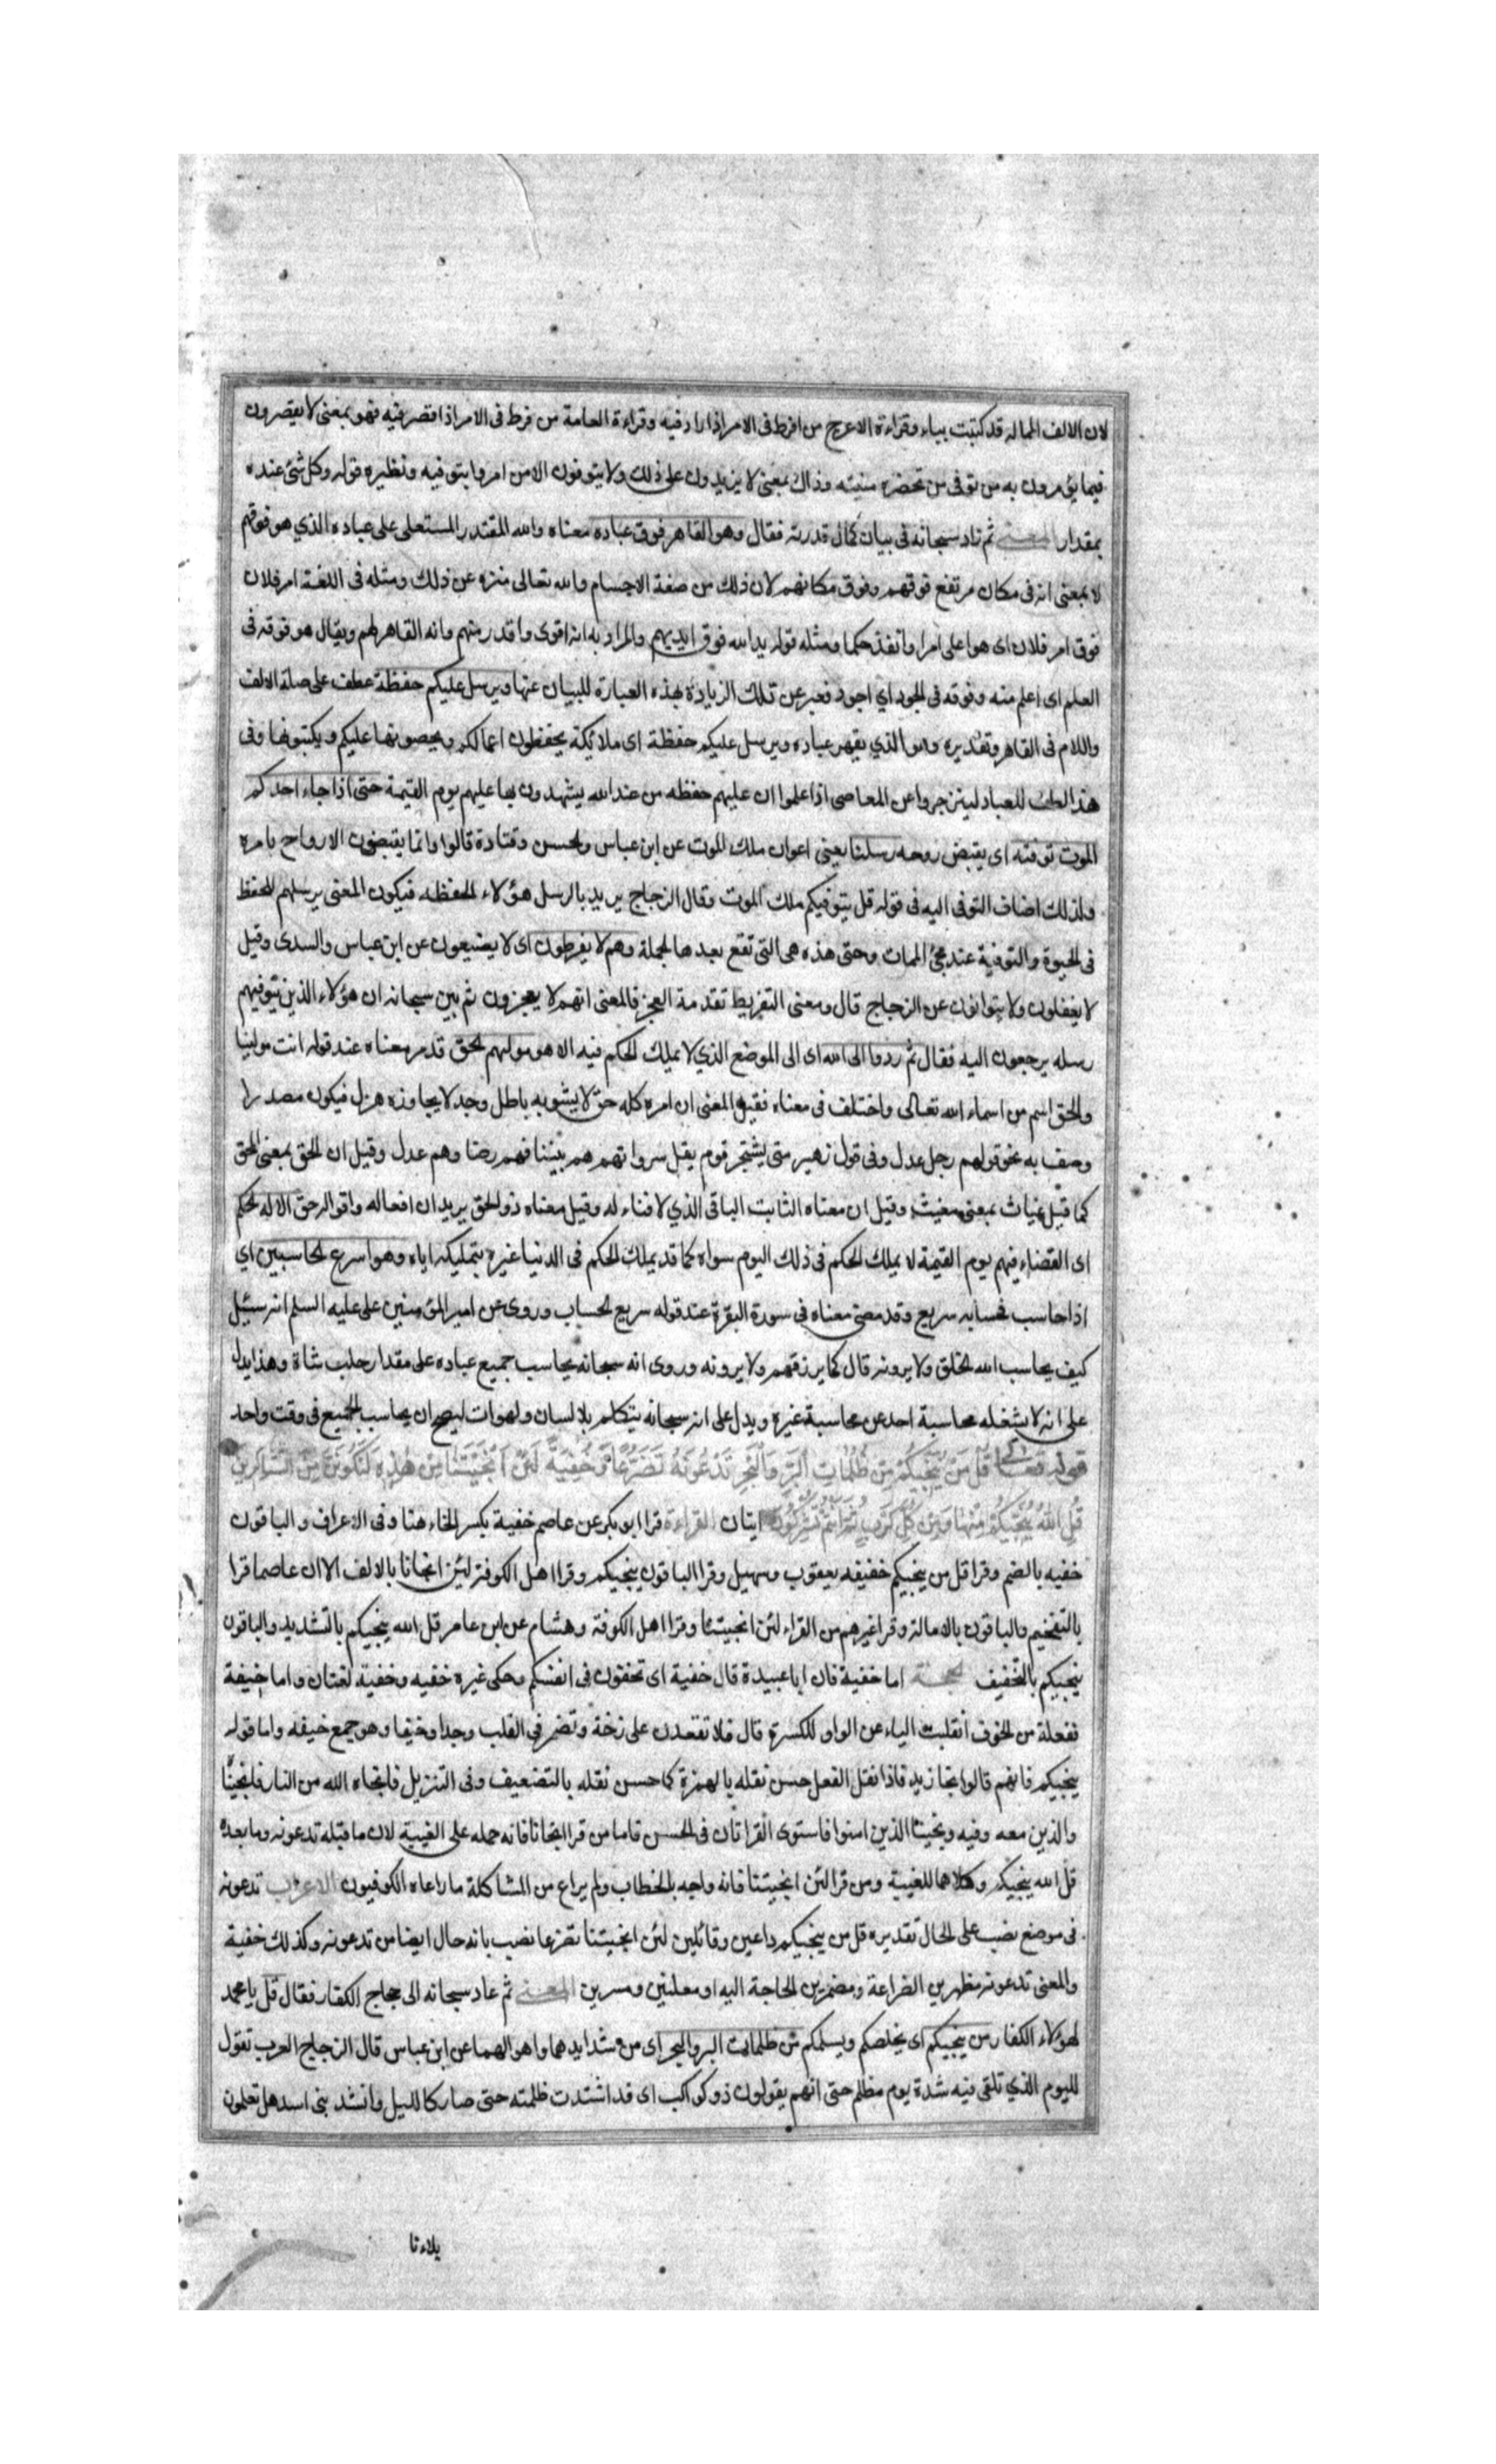 لان الالف الممالة قد كتبت بياء وقراءة الاعرج من افرط فى الامر اذا زاد فيه وقراءة العامة من فرط فى الامر اذا قصر فيه فهو بمعنى لا يقصرون
فيما يؤمرون به من توفى من تحضره منيته وذاك بمعنى لا يزيدون على ذلك ولا يتوفون الا من امروا بتوفيه ونظيره قوله وكل شئ عنده
بمقدار المعنى ثم زاد سبحانه فى بيان كمال قدرته فقال وهو القاهر فوق عباده معناه والله المقتدر المستعلى على عباده الذي هو فوقهم
لا بمعنى انه فى مكان مرتفع فوقهم وفوق مكانهم لان ذلك من صفة الاجسام والله تعالى منزه عن ذلك ومثله فى اللغة امر فلان
فوق امر فلان اى هو اعلى امرا وانفذ حكما ومثله قوله يد الله فوق ايديهم والمراد به انه اقوى واقدر منهم وانه القاهر لهم ويقال هو فوقه فى
العلم اى اعلم منه وفوقه فى الجود اي اجود فعبر عن تلك الزيادة بهذه العبارة للبيان عنها ويرسل عليكم حفظة عطف على صلة الالف
واللام فى القاهر وتقديره وهو الذي يقهر عباده ويرسل عليكم حفظة اى ملائكة يحفظون اعمالكم ويحصونها عليكم ويكتبونها وفى
هذا لطف للعباد لينزجروا عن المعاصى اذا علموا ان عليهم حفظه من عند الله يشهدون بها عليهم يوم القيمة حتى اذا جاء احدكم
الموت توفته اى يقبض روحه رسلنا يعنى اعوان ملك الموت عن ابن عباس والحسن وقتادة قالوا وانما يقبضون الارواح بامره
ولذلك اضاف التوفى اليه فى قوله قل يتوفيكم ملك الموت وقال الزجاج يريد بالرسل هؤلاء الحفظه فيكون المعنى يرسلهم للحفظ
فى الحيوة والتوفية عند مجئ الممات وحتى هذه هى التى تقع بعدها الجملة وهم لا يفرطون اى لا يضيعون عن ابن عباس والسدى وقيل
لا يغفلون ولا يتوانون عن الزجاج قال ومعنى التفريط تقدمة العجز فالمعنى انهم لا يعجزون ثم بين سبحانه ان هؤلاء الذين تتوفيهم
رسله يرجعون اليه فقال ثم ردوا الى الله اى الى الموضع الذي لا يملك الحكم فيه الا هو موليهم الحق قد مر معناه عند قوله انت مولينا
والحق اسم من اسماء الله تعالى واختلف فى معناه فقيل المعنى ان امره كله حق لا يشوبه باطل وجد لا يجاوزه هزل فيكون مصدرا
وصف به نحو قولهم رجل عدل وفى قول زهير متى يشتجر قوم يقل سرواتهم هم بيننا فهم رضا وهم عدل وقيل ان الحق بمعنى المحق
كما قيل غياث بمعنى مغيث وقيل ان معناه الثابت الباقى الذي لا فناء له وقيل معناه ذو الحق يريد ان افعاله واقواله حق الا له الحكم
اى القضاء فيهم يوم القيمة لا يملك الحكم فى ذلك اليوم سواه كما قد يملك الحكم فى الدنيا غيره بتمليكه اياه وهو اسرع الحاسبين اي
اذا حاسب فحسابه سريع وقد مضى معناه فى سورة البقرة عند قوله سريع الحساب وروى عن امير المؤمنين على عليه السلم انه سئل
كيف يحاسب الله الخلق ولا يرونه قال كما يرزقهم ولا يرونه وروى انه سبحانه يحاسب جميع عباده على مقدار حلب شاة وهذا يدل
على انه لا يشغله محاسبة احد عن محاسبة غيره ويدل على انه سبحانه يتكلم بلا لسان ولهوات ليصح ان يحاسب الجميع فى وقت واحد
قوله تعالى قُل مَن يُنَجّيكُم مِن ظُلُماتِ البَرِّ وَالبَحرِ تَدعُونَهُ تَضَرُّعًا وَخُفيَةً لَئِن اَنجَيتَنا مِن هٰذِهِ لَنَكُونَنَّ مِنَ الشّاكِرينَ
قُلِ اللهُ يُنَجّيكُم مِنها وَمِن كُلِّ كَربٍ ثُمَّ اَنتُم تُشرِكُونَ ايتان القراءة قرا ابو بكر عن عاصم خفية بكسر الخاء هنا وفى الاعراف والباقون
خفيه بالضم وقرا قل من ينجيكم خفيفه يعقوب وسهيل وقرا الباقون ينجيكم وقرا اهل الكوفة لئن انجانا بالالف الا ان عاصما قرا
بالتفخيم والباقون بالامالة وقرا غيرهم من القراء لئن انجيتنا وقرا اهل الكوفة وهشام عن ابن عامر قل الله ينجيكم بالتشديد والباقون
ينجيكم بالتخفيف الحجة اما خفية فان ابا عبيدة قال خفية اى تخفون فى انفسكم وحكى غيره خفيه وخفية لغتان واما خيفة
ففعلة من الخوف انقلبت الياء عن الواو للكسرة قال فلا تقعدن على زخة وتضمر فى القلب وجدا وخيفا وهو جمع خيفه واما قوله
ينجيكم فانهم قالوا نجا زيد فاذا نقل الفعل حسن نقله بالهمزة كما حسن نقله بالتضعيف وفى التنزيل فانجاه الله من النار فانجيناه
والذين معه وفيه ونجينا الذين امنوا فاستوى القراتان فى الحسن فاما من قرا انجانا فانه حمله على الغيبة لان ما قبله تدعونه وما بعده
قل الله ينجيكم وكلاهما للغيبة ومن قرا لئن انجيتنا فانه واجه بالخطاب ولم يراع من المشاكلة ما راعاه الكوفيون الاعراب تدعونه
فى موضع نصب على الحال تقديره قل من ينجيكم داعين وقائلين لئن انجيتنا تضرعا نصب بانه حال ايضا من تدعونه وكذلك خفية
والمعنى تدعونه مظهرين الضراعة ومضمرين الحاجة اليه او معلنين ومسرين المعنى ثم عاد سبحانه الى حجاج الكفار فقال قل يا محمد
لهؤلاء الكفار من ينجيكم اى يخلصكم ويسلمكم من ظلمات البر والبحر اى من شدايدهما واهوالهما عن ابن عباس قال الزجاج العرب تقول
لليوم الذي تلقى فيه شدة يوم مظلم حتى انهم يقولون ذو كواكب اى قد اشتدت ظلمته حتى صار كالليل وانشد بنى اسد هل تعلمون
بلاءنا